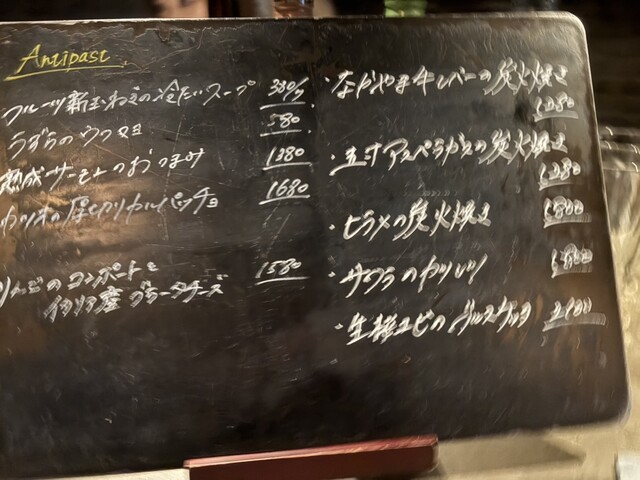 Antipast
フルーツ新玉ねぎの冷たいスープ 380/ケ
うずらのウフマヨ 580
熟成サーモンのおつまみ 1380
カツオの厚切りカルパッチョ 1680
りんごのコンポートと
イタリア産ブラータチーズ 1580
・ながやま牛レバーの炭火焼き
1280
・五寸アスパラガスの炭火焼き
1280
・ヒラメの炭火焼き 1800
・サワラのカツレツ 1800
・生桜エビの